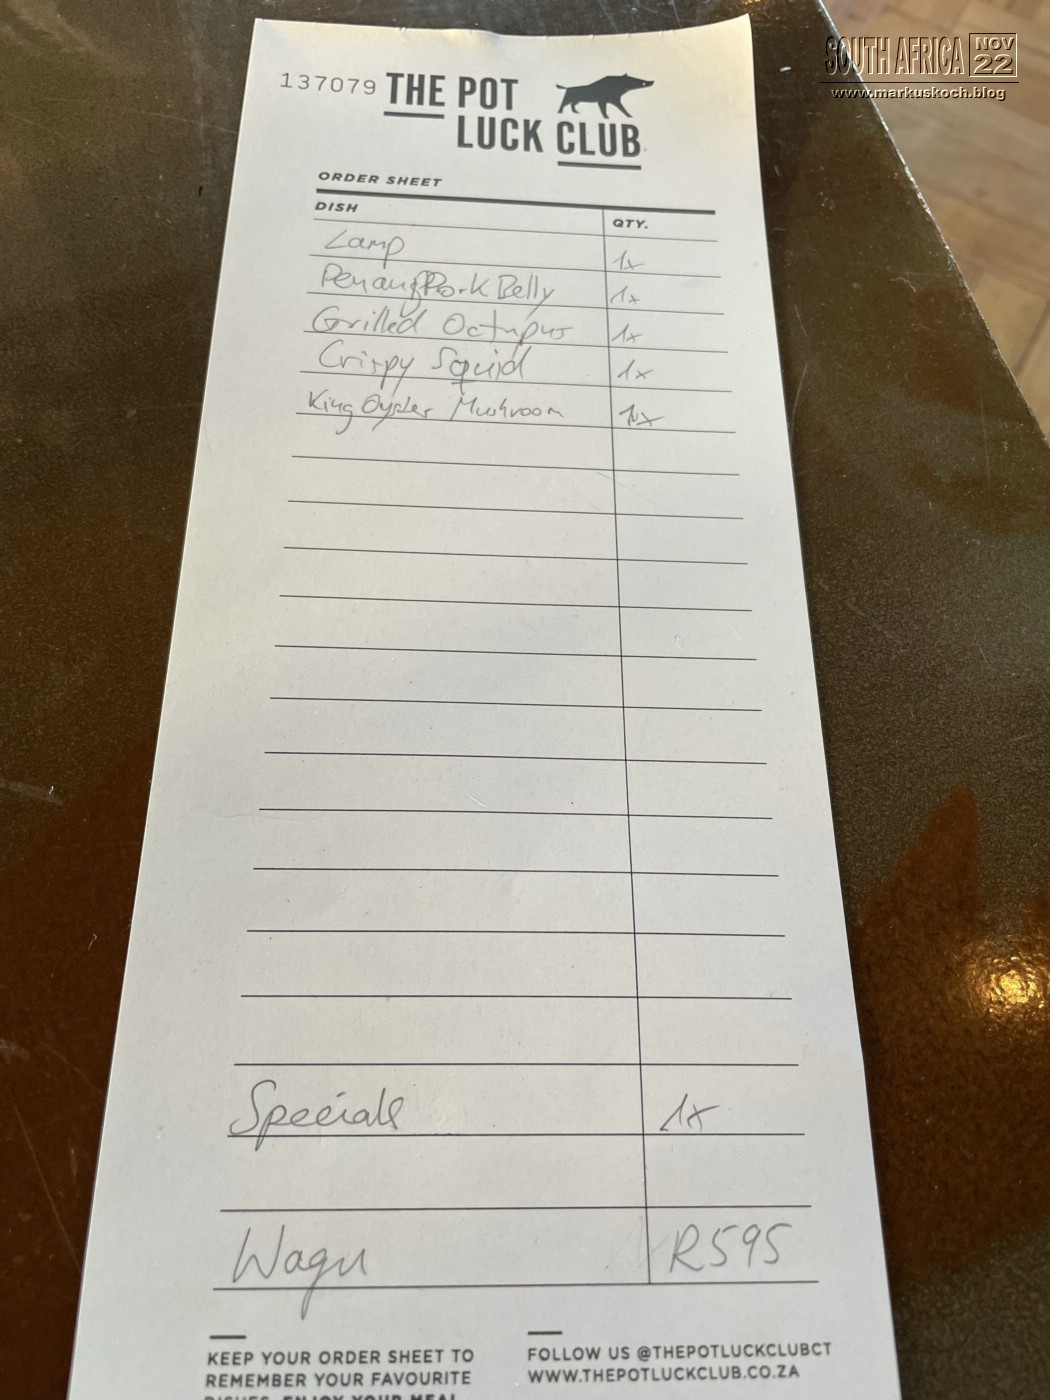 SOUTH AFRICA NOV 22
www.markuskoch.blog
137079 THE POT
LUCK CLUB
ORDER SHEET
DISH QTY.
Lamp 1x
Penang Pork Belly 1x
Grilled Octupus 1x
Crispy Squid 1x
King Oyster Mushroom 1x
Specials 1x
Wagu R595
KEEP YOUR ORDER SHEET TO
REMEMBER YOUR FAVOURITE
DISHES. ENJOY YOUR MEAL
FOLLOW US @THEPOTLUCKCLUBCT
WWW.THEPOTLUCKCLUB.CO.ZA